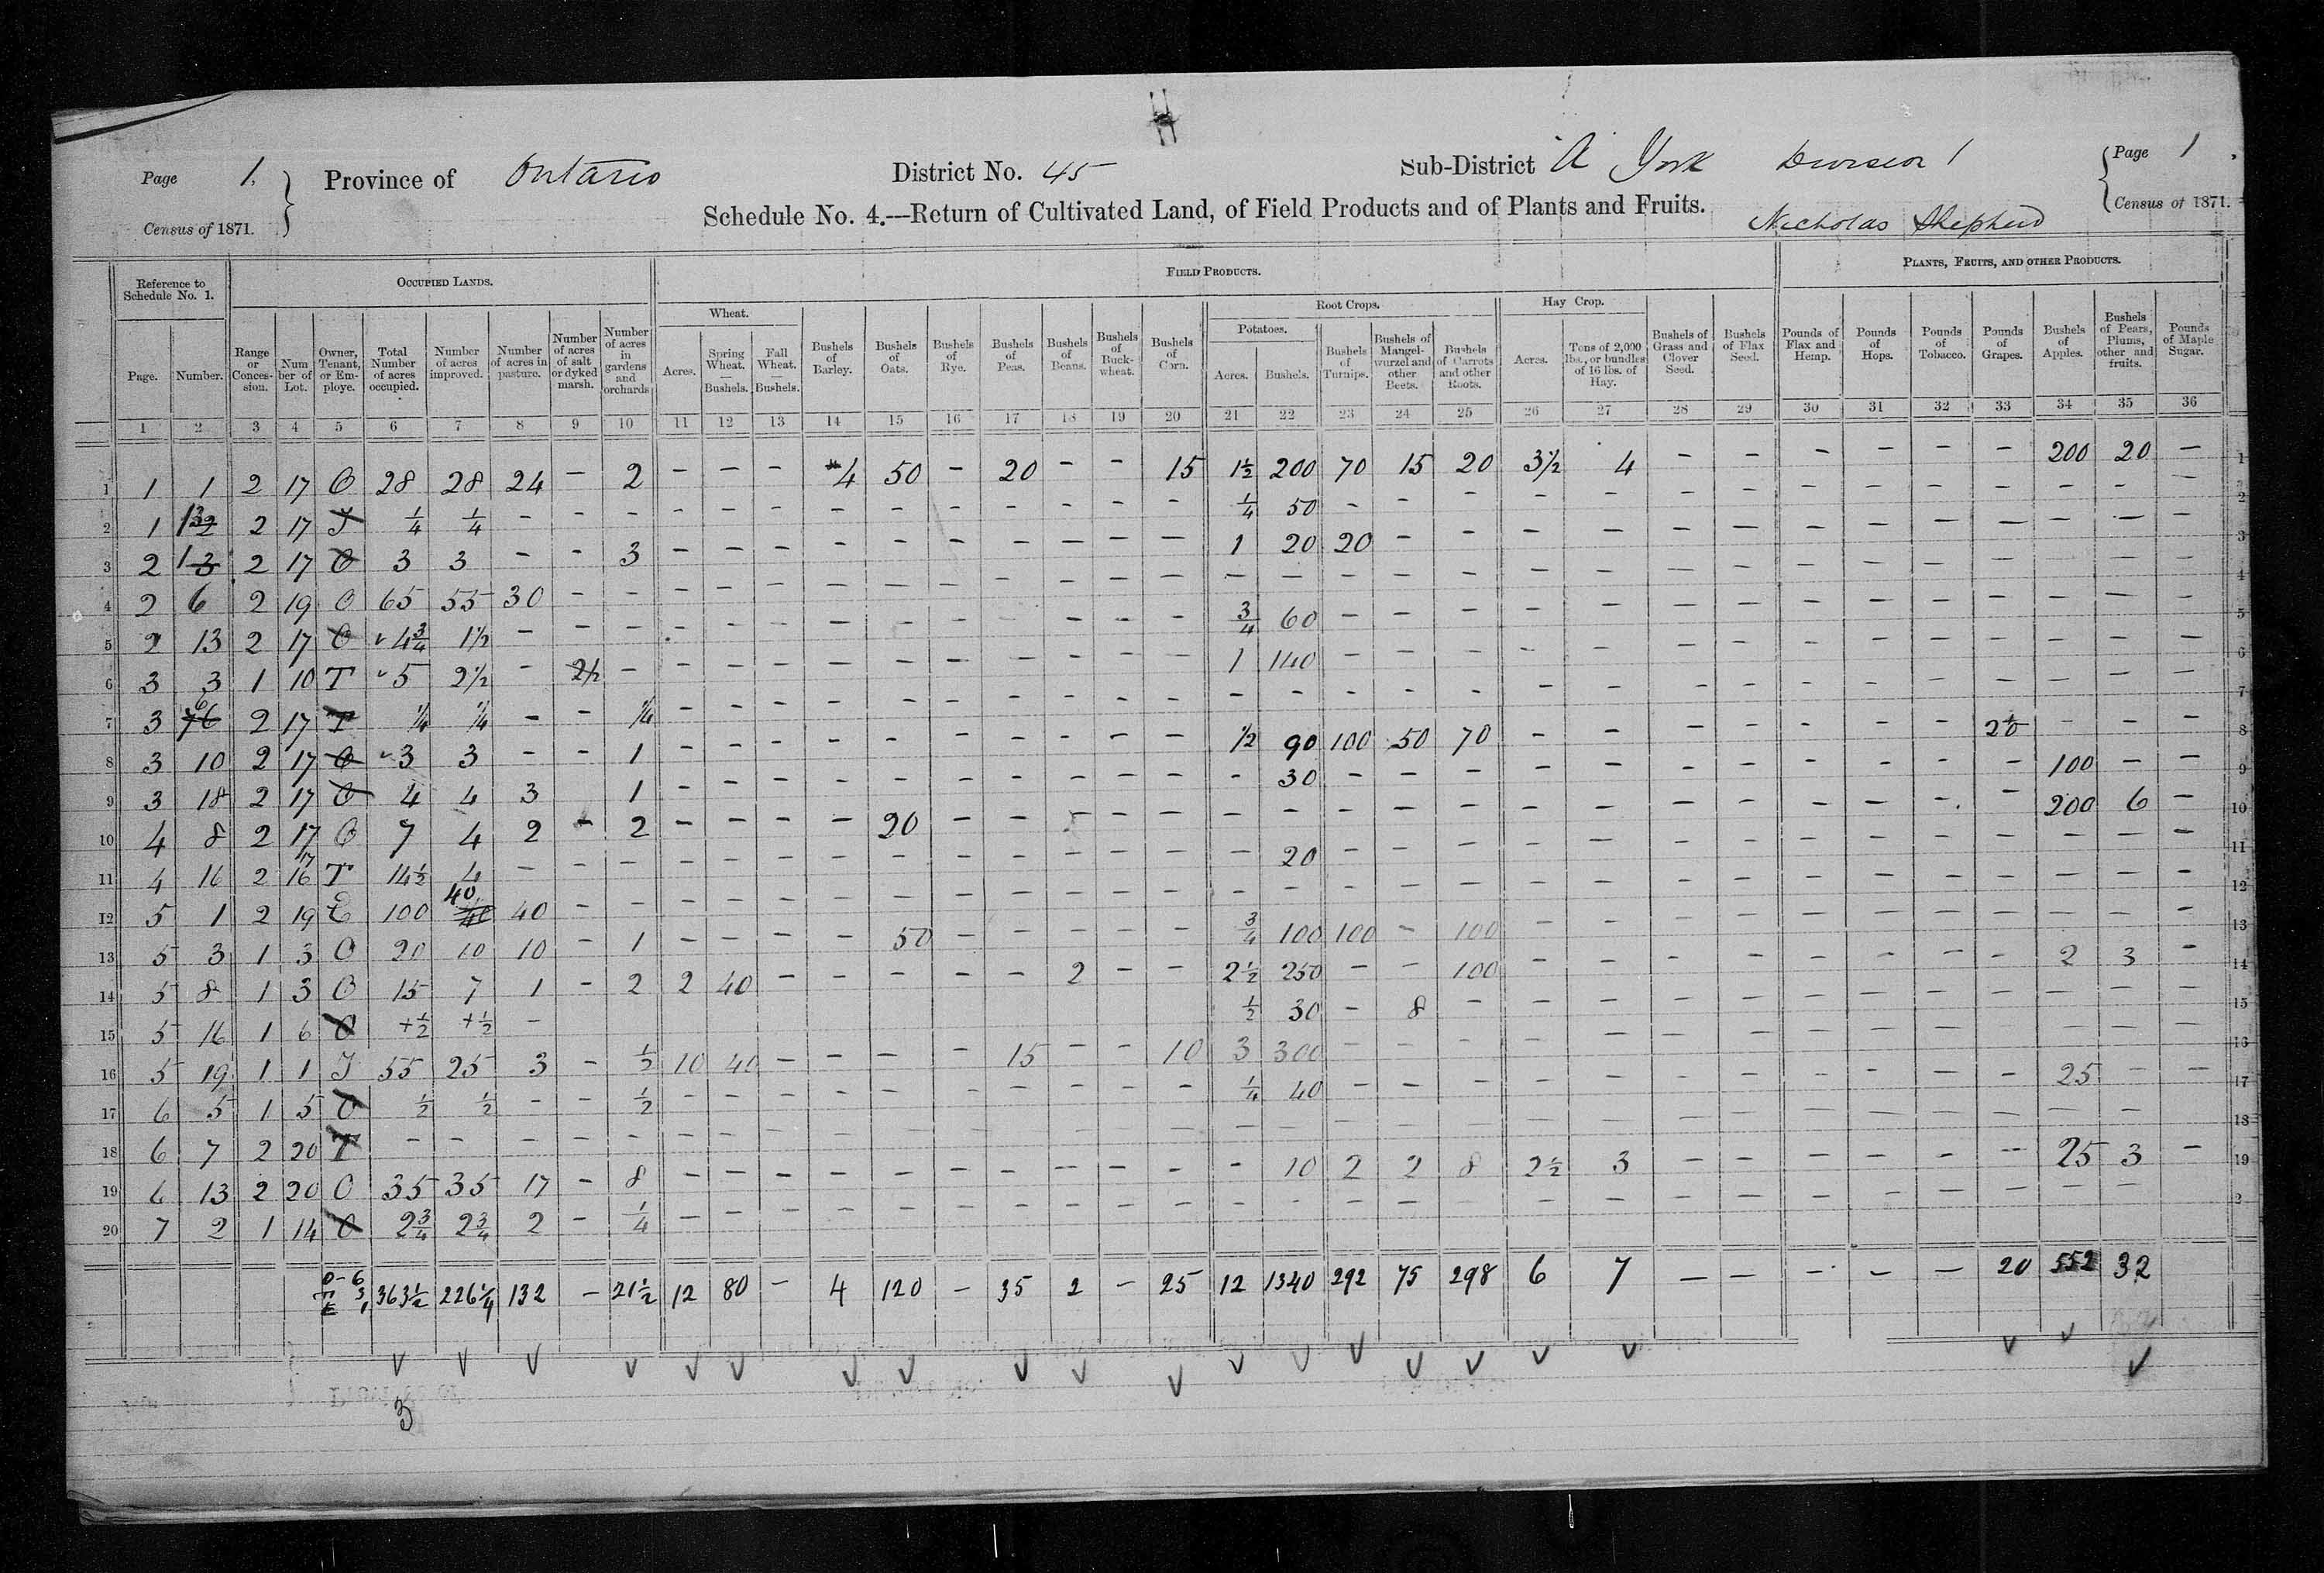 H
Page 1. Province of Ontario District No. 45 Sub-District A York Division 1 Page 1.
Census of 1871. Schedule No. 4.---Return of Cultivated Land, of Field Products and of Plants and Fruits. Nicholas Shepherd Census of 1871.
Reference to Schedule No. 1. OCCUPIED LANDS. FIELD PRODUCTS. PLANTS, FRUITS, AND OTHER PRODUCTS.
Wheat. Root Crops. Hay Crop.
Potatoes.
Page. Number. Range or Conces- sion. Num ber of Lot. Owner, Tenant, or Em- ploye. Total Number of acres occupied. Number of acres improved. Number of acres in pasture. Number of acres of salt or dyked marsh. Number of acres in gardens and orchards Acres. Spring Wheat. — Bushels. Fall Wheat. — Bushels. Bushels of Barley. Bushels of Oats. Bushels of Rye. Bushels of Peas. Bushels of Beans. Bushels of Buck- wheat. Bushels of Corn. Acres. Bushels. Bushels of Turnips. Bushels of Mangel- wurzel and other Beets. Bushels of Carrots and other Roots. Acres. Tons of 2,000 lbs., or bundles of 16 lbs. of Hay. Bushels of Grass and Clover Seed. Bushels of Flax Seed. Pounds of Flax and Hemp. Pounds of Hops. Pounds of Tobacco. Pounds of Grapes. Bushels of Apples. Bushels of Pears, Plums, other and fruits. Pounds of Maple Sugar.
1 2 3 4 5 6 7 8 9 10 11 12 13 14 15 16 17 18 19 20 21 22 23 24 25 26 27 28 29 30 31 32 33 34 35 36
1 1 1 2 17 O 28 28 24 - 2 - - - 4 50 - 20 - - 15 1½ 200 70 15 20 3½ 4 - - - - - - 200 20 - 1
2 1 2 17 T ¼ ¼ - - - - - - - - - - - - - ¼ 50 - - - - - - - - - - - - - - 2
3 2 13 2 17 O 3 3 - - 3 - - - - - - - - - - 1 20 20 - - - - - - - - - - - - - 3
4 2 6 2 19 O 65 55 30 - - - - - - - - - - - - - - - - - - - - - - - - - - - - 4
5 2 13 2 17 O 4¾ 1½ - - - - - - - - - - - - - ¾ 60 - - - - - - - - - - - - - - 5
6 3 3 1 10 T 5 2½ - 2½ - - - - - - - - - - - 1 140 - - - - - - - - - - - - - - 6
7 3 6 2 17 T ¼ ¼ - - ¼ - - - - - - - - - - - - - - - - - - - - - - - - - - 7
8 3 10 2 17 O 3 3 - - 1 - - - - - - - - - - ½ 90 100 50 70 - - - - - - - 20 - - - 8
9 3 18 2 17 O 4 4 3 1 - - - - - - - - - - - 30 - - - - - - - - - - - 100 - - 9
10 4 8 2 17 O 7 4 2 - 2 - - - - 20 - - - - - - - - - - - - - - - - - - 200 6 - 10
11 4 16 2 17 16 T 14½ 4 - - - - - - - - - - - - - - 20 - - - - - - - - - - - - - - 11
12 5 1 2 19 E 100 40 40 - - - - - - - - - - - - - - - - - - - - - - - - - - - - 12
13 5 3 1 3 O 20 10 10 - 1 - - - - 50 - - - - - ¾ 100 100 - 100 - - - - - - - - - - - 13
14 5 8 1 3 O 15 7 1 - 2 2 40 - - - - - 2 - - 2½ 250 - - 100 - - - - - - - - 2 3 - 14
15 5 16 1 6 O +½ +½ - ½ 30 - 8 - - - - - - - - - - - - 15
16 5 19 1 1 T 55 25 3 - ½ 10 40 - - - - 15 - - 10 3 300 - - - - - - - - - - - - - - 16
17 6 5 1 5 O ½ ½ - - ½ - - - - - - - - - - ¼ 40 - - - - - - - - - - - 25 - - 17
18 6 7 2 20 T - - - - - - - - - - - - - - - - - - - - - - - - - - - - - - 18
19 6 13 2 20 O 35 35 17 - 8 - - - - - - - - - - - 10 2 2 8 2½ 3 - - - - - - 25 3 - 19
20 7 2 1 14 O 2¾ 2¾ 2 - ¼ - - - - - - - - - - - - - - - - - - - - - - - - - 2
O-6 T 3 E 1 363½ 226¼ 132 - 21½ 12 80 - 4 120 - 35 2 - 25 12 1340 292 75 298 6 7 - - - - - 20 552 32
3